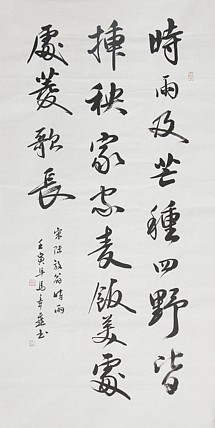 時雨及芒種四野皆
揷秧家家麦飯美處
處菱歌長
宋陸放翁時雨
壬寅年馬